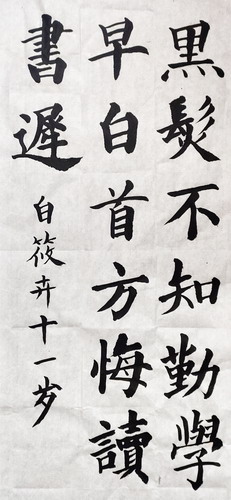 黑髮不知勤學
早白首方悔讀
書遲 白筱卉十一岁